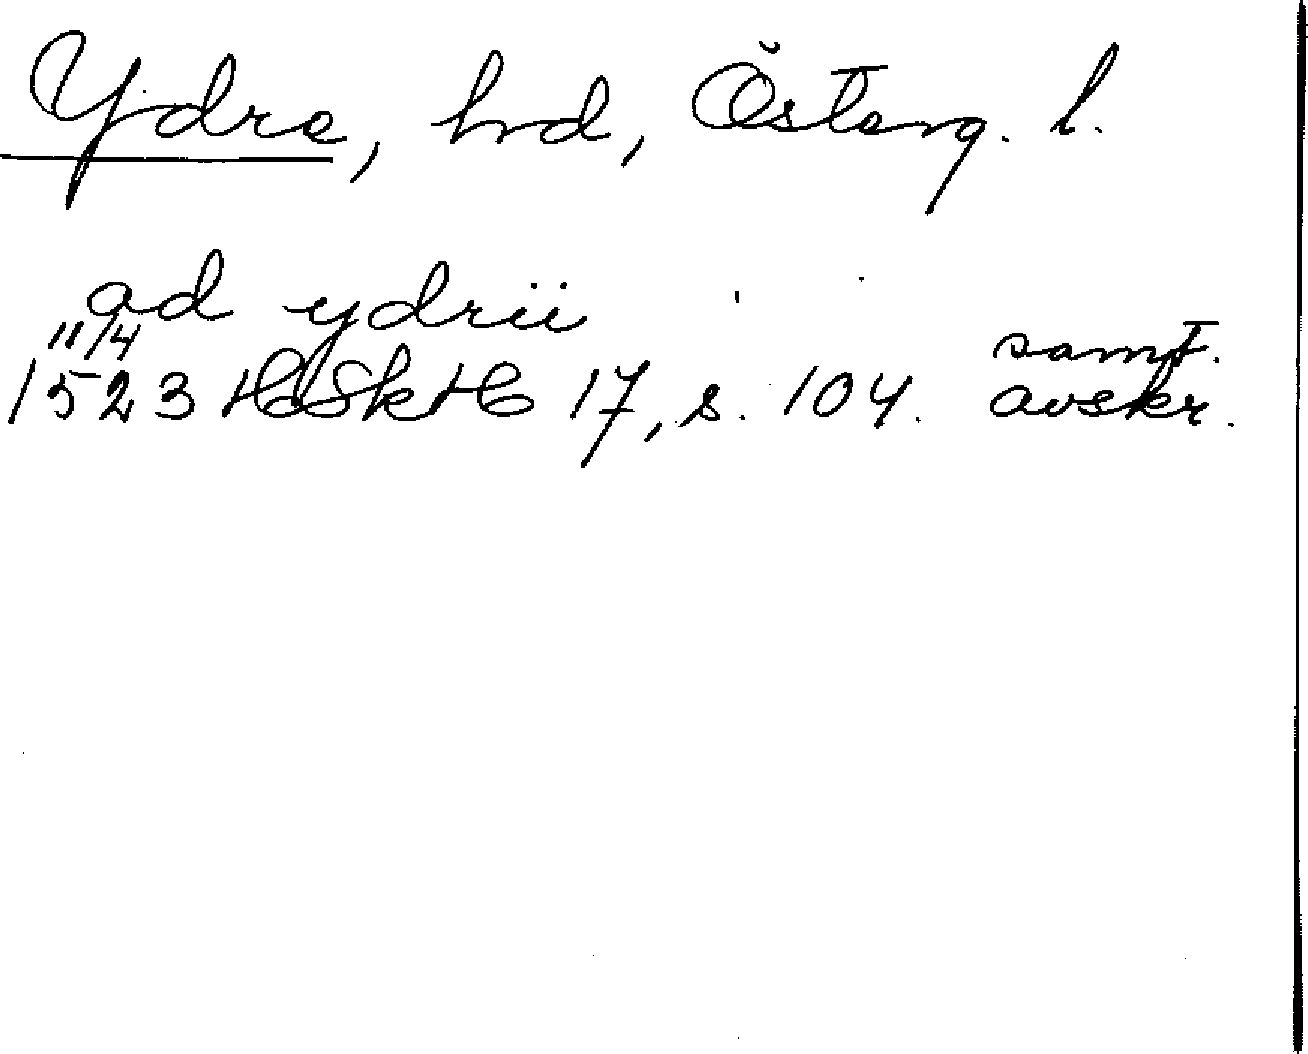 Ydre, hd, Österg. l.
ad ydrii
11/4
1523 HSkH 17, s. 104. samt.
avskr.